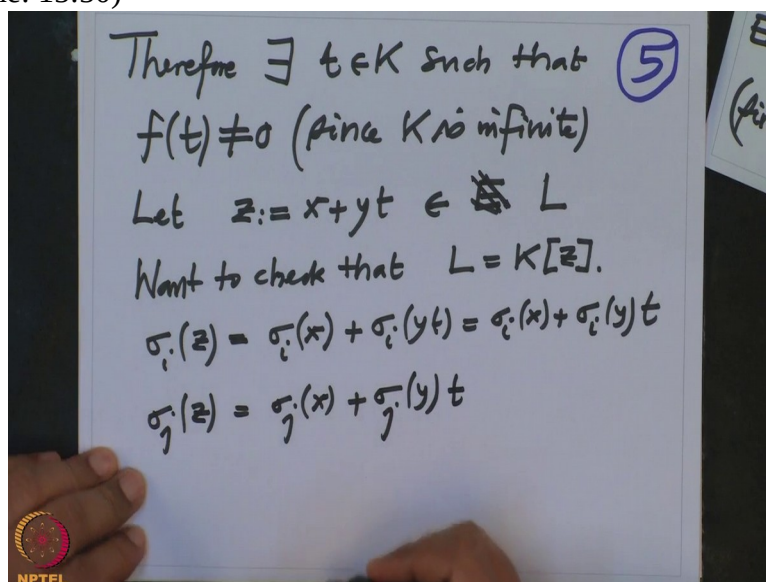 Therefore ∃ t ∈ K such that
5
f(t) ≠ 0 (since K is infinite)
Let z := x + yt ∈ L
Want to check that L = K[z].
σᵢ(z) = σᵢ(x) + σᵢ(yt) = σᵢ(x) + σᵢ(y) t
σⱼ(z) = σⱼ(x) + σⱼ(y) t
NPTEL